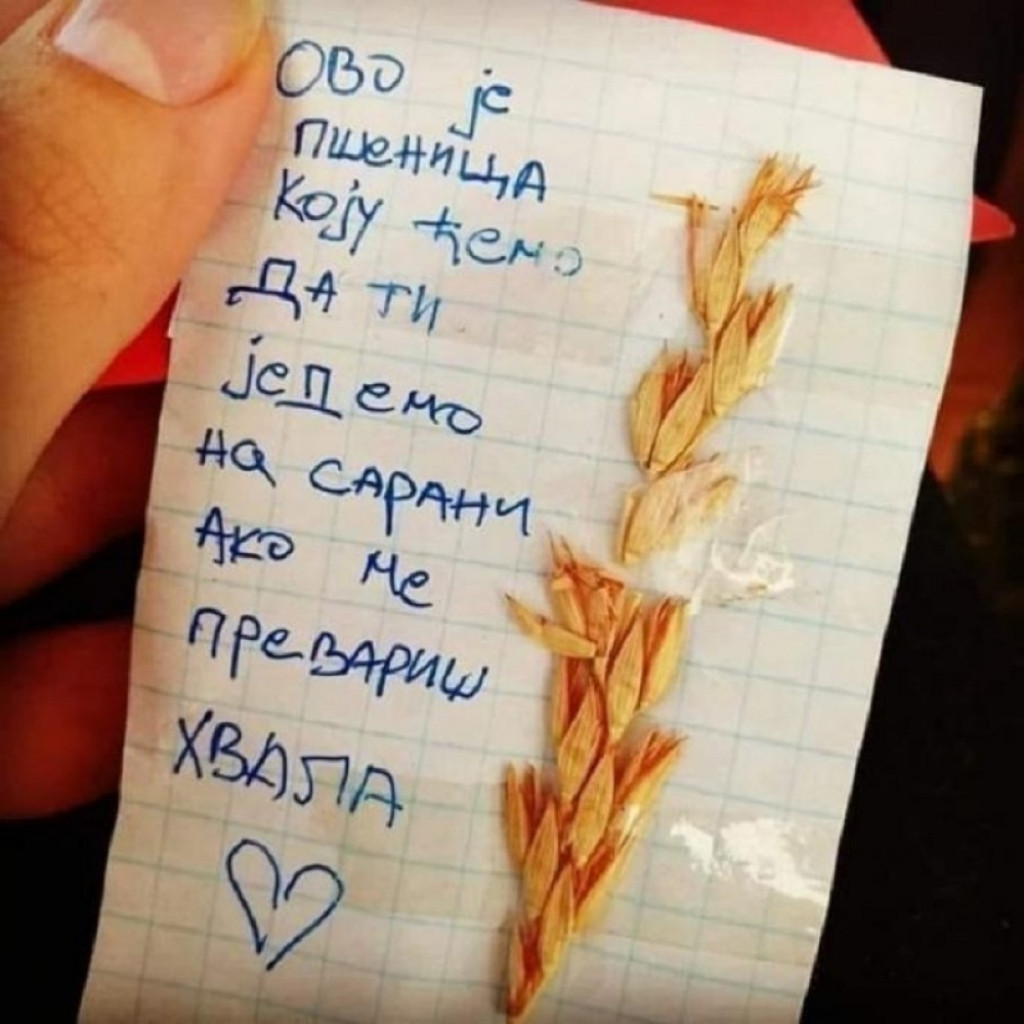 ОВО је
пшеница
Коју ћемо
ДА ТИ
једемо
на сарани
Ако ме
превариш
ХВАЛА